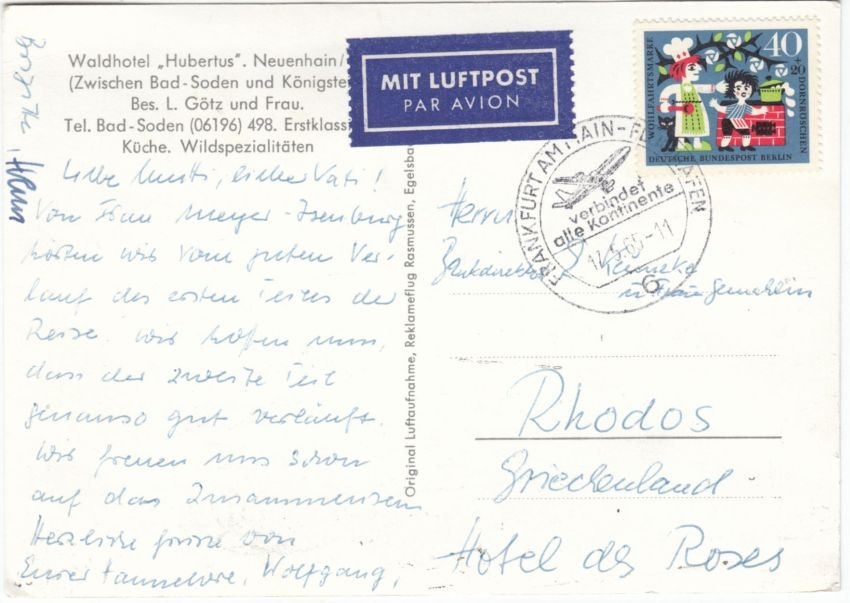 Waldhotel „Hubertus". Neuenhain/
(Zwischen Bad-Soden und Königste
Bes. L. Götz und Frau.
Tel. Bad-Soden (06196) 498. Erstklass
Küche. Wildspezialitäten
MIT LUFTPOST
PAR AVION
WOHLFAHRTSMARKE
40
+20
DORNRÖSCHEN
DEUTSCHE BUNDESPOST BERLIN
FRANKFURT AM MAIN-FL HAFEN
verbindet
alle Kontinente
-11
Original Luftaufnahme, Reklameflug Rasmussen, Egelsba
Liebe Mutti, lieber Vati!
Von Frau Meyer-Isenburg
hörten wir vom guten Ver-
lauf des ersten Teiles der
Reise. Wir hoffen nun,
dass der zweite Teil
genauso gut verläuft.
Wir freuen uns schon
auf das Zusammensein
Herzliche Grüsse von
Eurer Hannelore, Wolfgang,
Herrn
Bankdirektor
u. Frau Gemahlin
Rhodos
Griechenland
Hotel des Roses